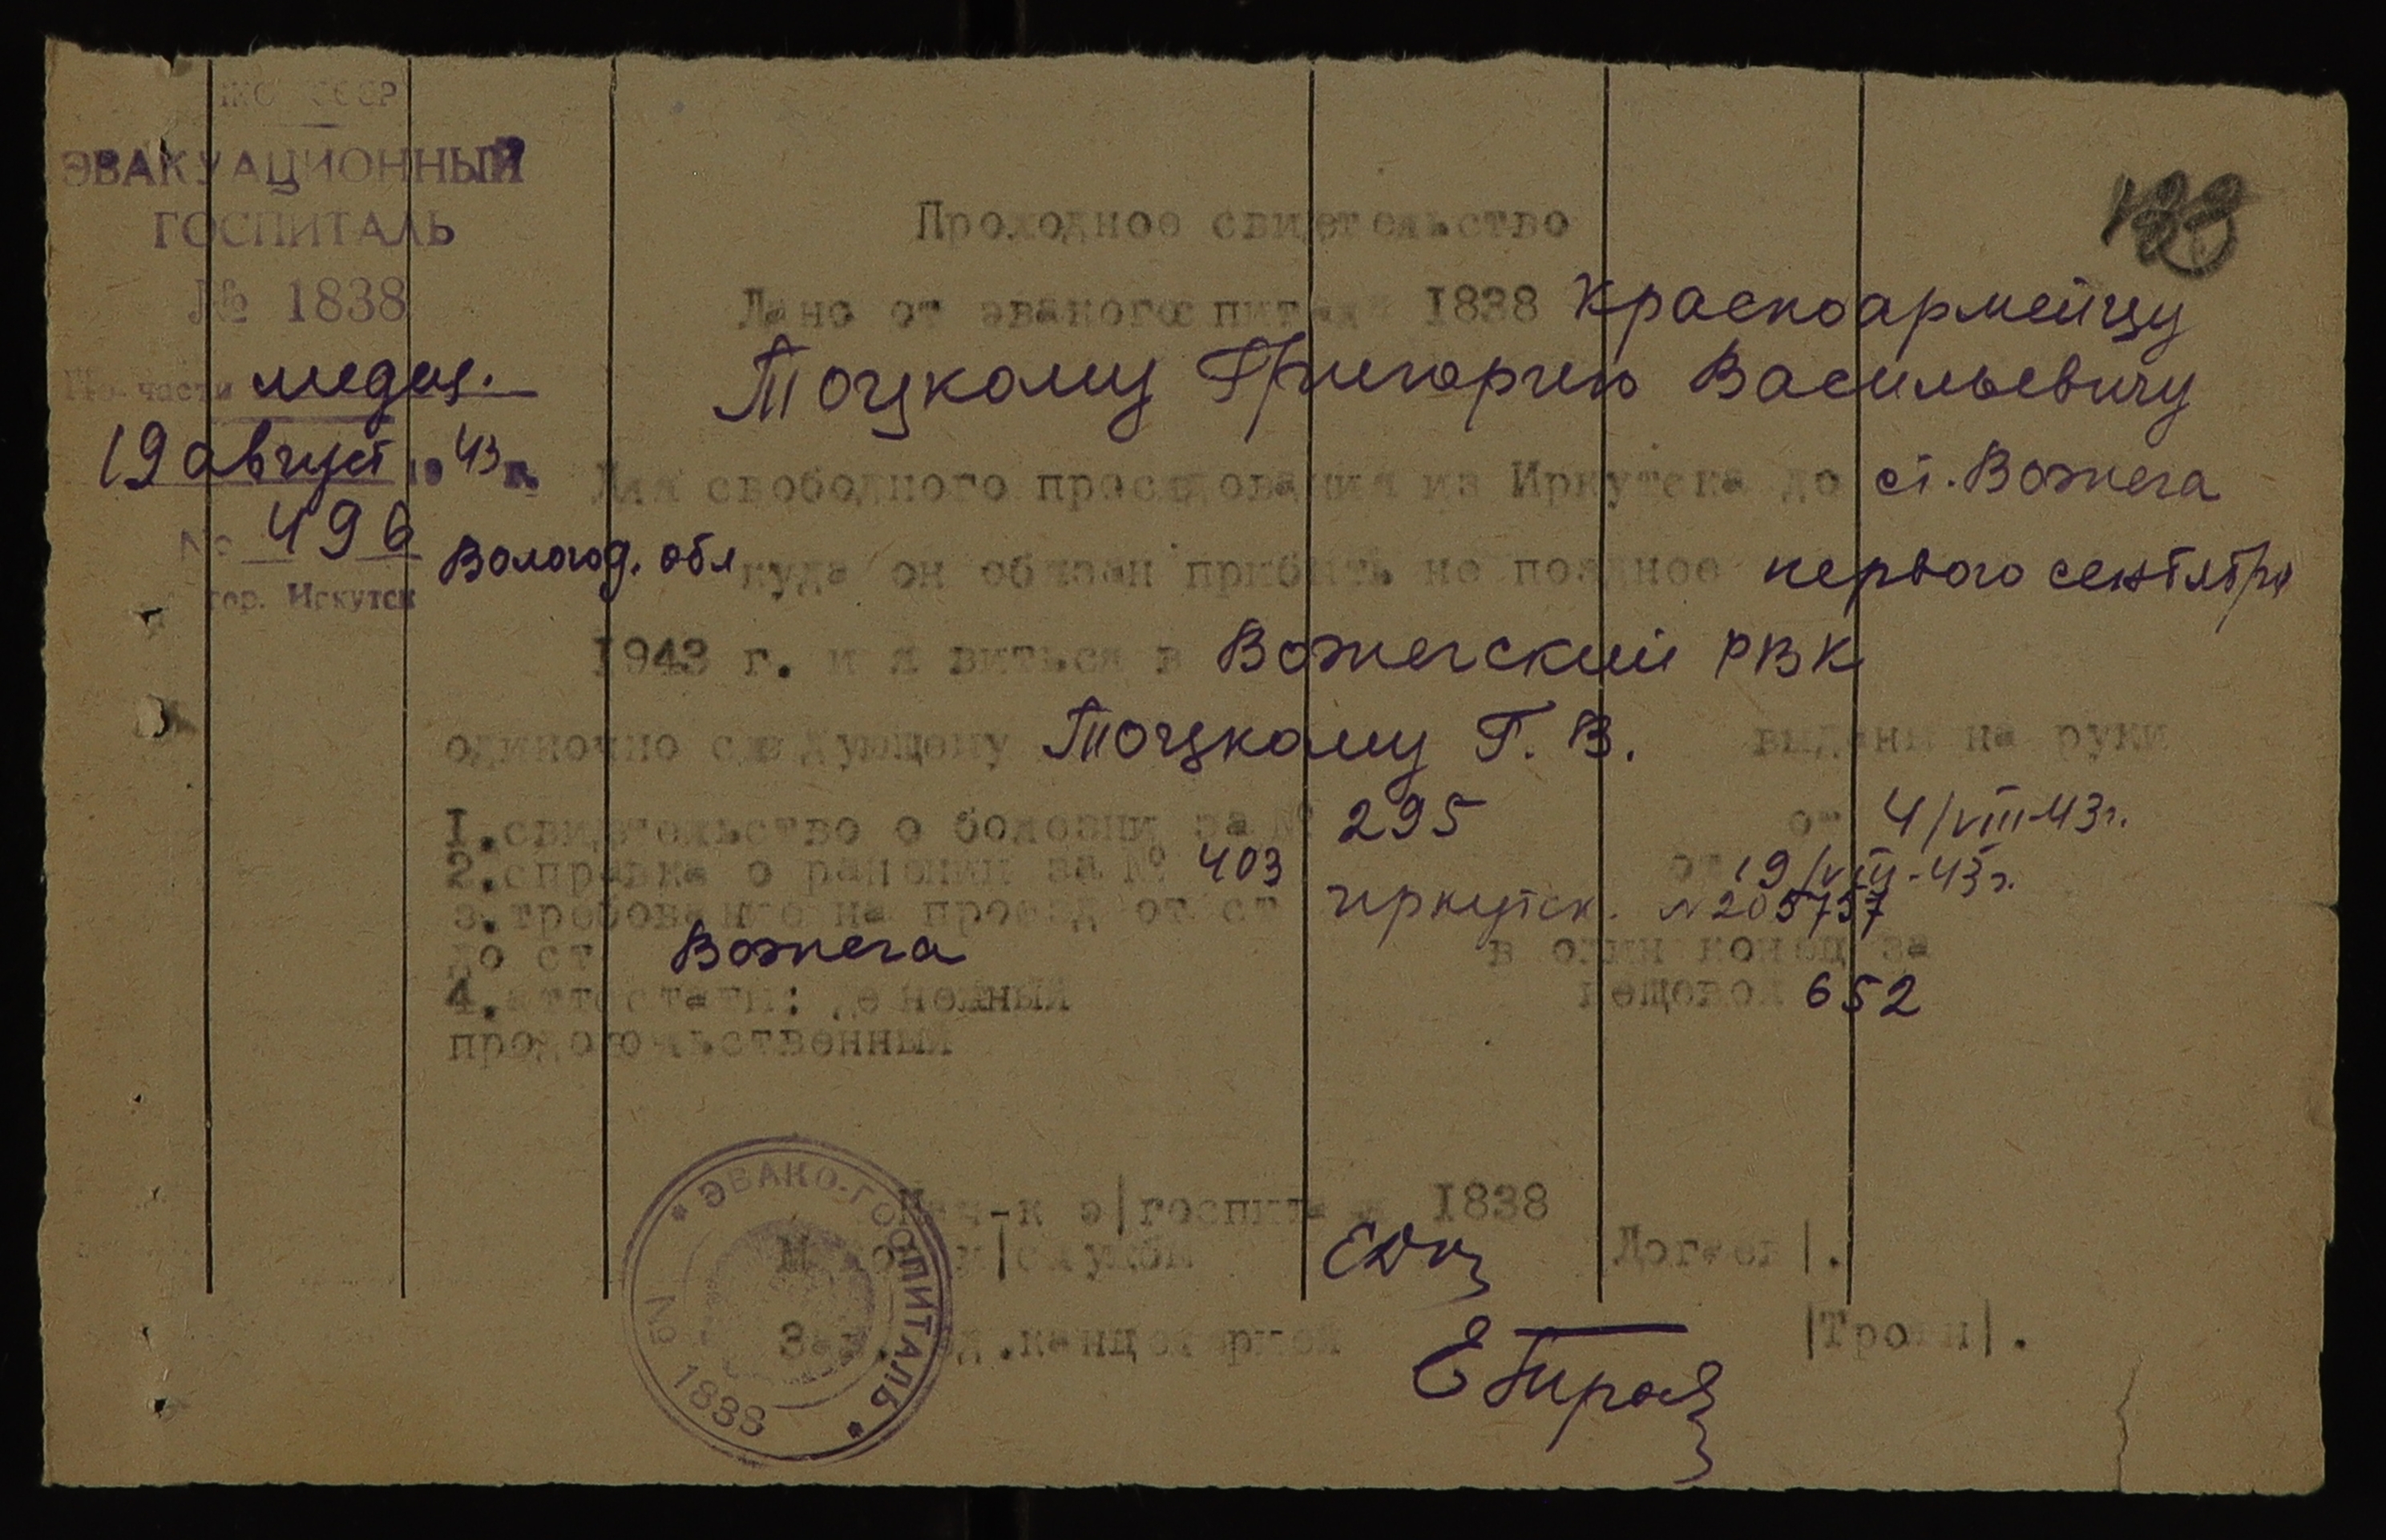 НКО СССР
ЭВАКУАЦИОННЫЙ
ГОСПИТАЛЬ
№ 1838
По части медиц.
19 август 1943 г.
№ 496
гор. Иркутск
Проходное свидетельство
Дано от эвакогоспиталя 1838 Красноармейцу
Тоцкому Григорию Васильевичу
Для свободного проследования из Иркутска до ст. Вожега
Вологод. обл куда он обязан прибыть не позднее первого сентября
1943 г. и явиться в Вожегский РВК
одиночно следующему Тоцкому Г. В. выданы на руки
1.свидетельство о болезни за № 295 от 4/VIII-43г.
2.справка о ранении за № 403 от 19/VIII-43г.
3.требование на проезд от ст Иркутск. №205757
до ст Вожега в один конец за
4.аттестаты: денежный вещевой 652
продовольственный
Нач-к э|госпиталя 1838
службы
Зав. канцелярией
ЭВАКО-ГОСПИТАЛЬ
№ 1838